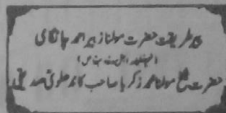 پیر طریقت حضرت مولانا زبیر احمد چاٹگامی
حضرت شیخ مولانا محمد زکریا صاحب کاندھلوی صدیقی